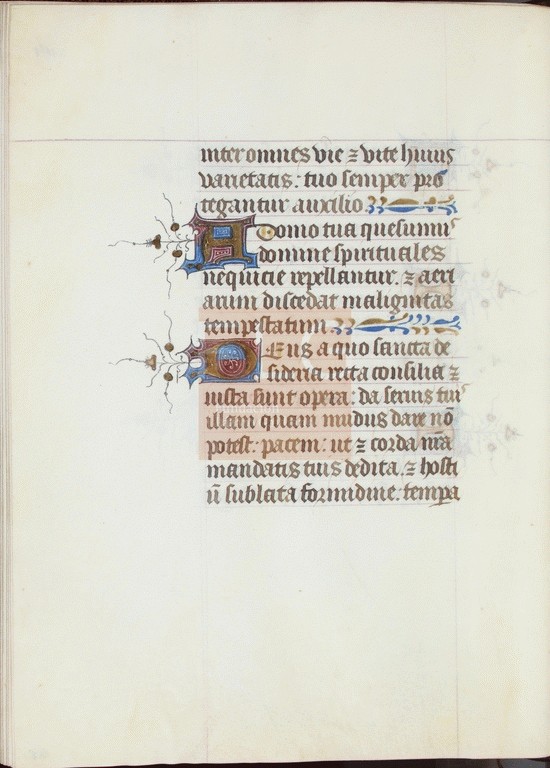 inter omnes vie ⁊ vite huius
varietatis: tuo semper pro
tegantur auxilio
A Domo tua quesumus
domine spirituales
nequicie repellantur. ⁊ aeri
arum discedat malignitas
tempestatum
Deus a quo sancta de
sideria recta consilia ⁊
iusta sunt opera: da seruis tuis
illam quam mūdus dare nō
potest. pacem: ut ⁊ corda nr̄a
mandatis tuis dedita. ⁊ hosti
ū sublata formidine. tempa